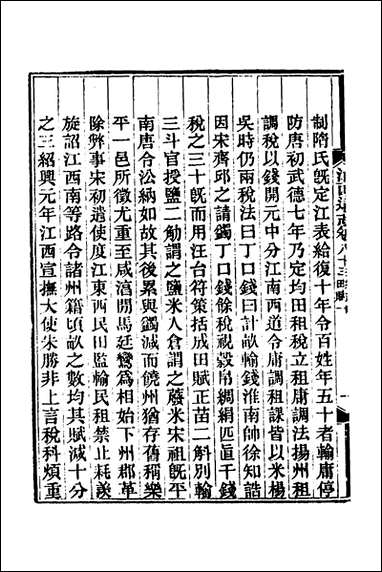 江西通志卷八十三
制隋氏旣定江表給復十年令百姓年五十者輸庸停
防唐初武德七年乃定均田租稅立租庸調法揚州租
調稅以錢開元中分江南西道令庸調租課皆以米楊
吳時仍兩稅法曰丁口錢曰計畝輸錢淮南帥徐知誥
因宋齊邱之請蠲丁口錢餘稅視穀帛綢絹匹直千錢
稅之三十旣而用汪台符策括成田賦正苗二斛別輸
三斗官授鹽二觔謂之鹽米入倉謂之廢米宋祖旣平
南唐令沿納如故其後累與蠲減而饒州猶存舊稱樂
平一邑所徵尤重至咸淳閒馬廷鸞爲相始下州郡革
除弊事宋初遣使度江東西民田監輸民租禁止耗羨
旋詔江西南等路令諸州籍頃畝之數均其賦減十分
之三紹興元年江西宣撫大使朱勝非上言稅科煩重